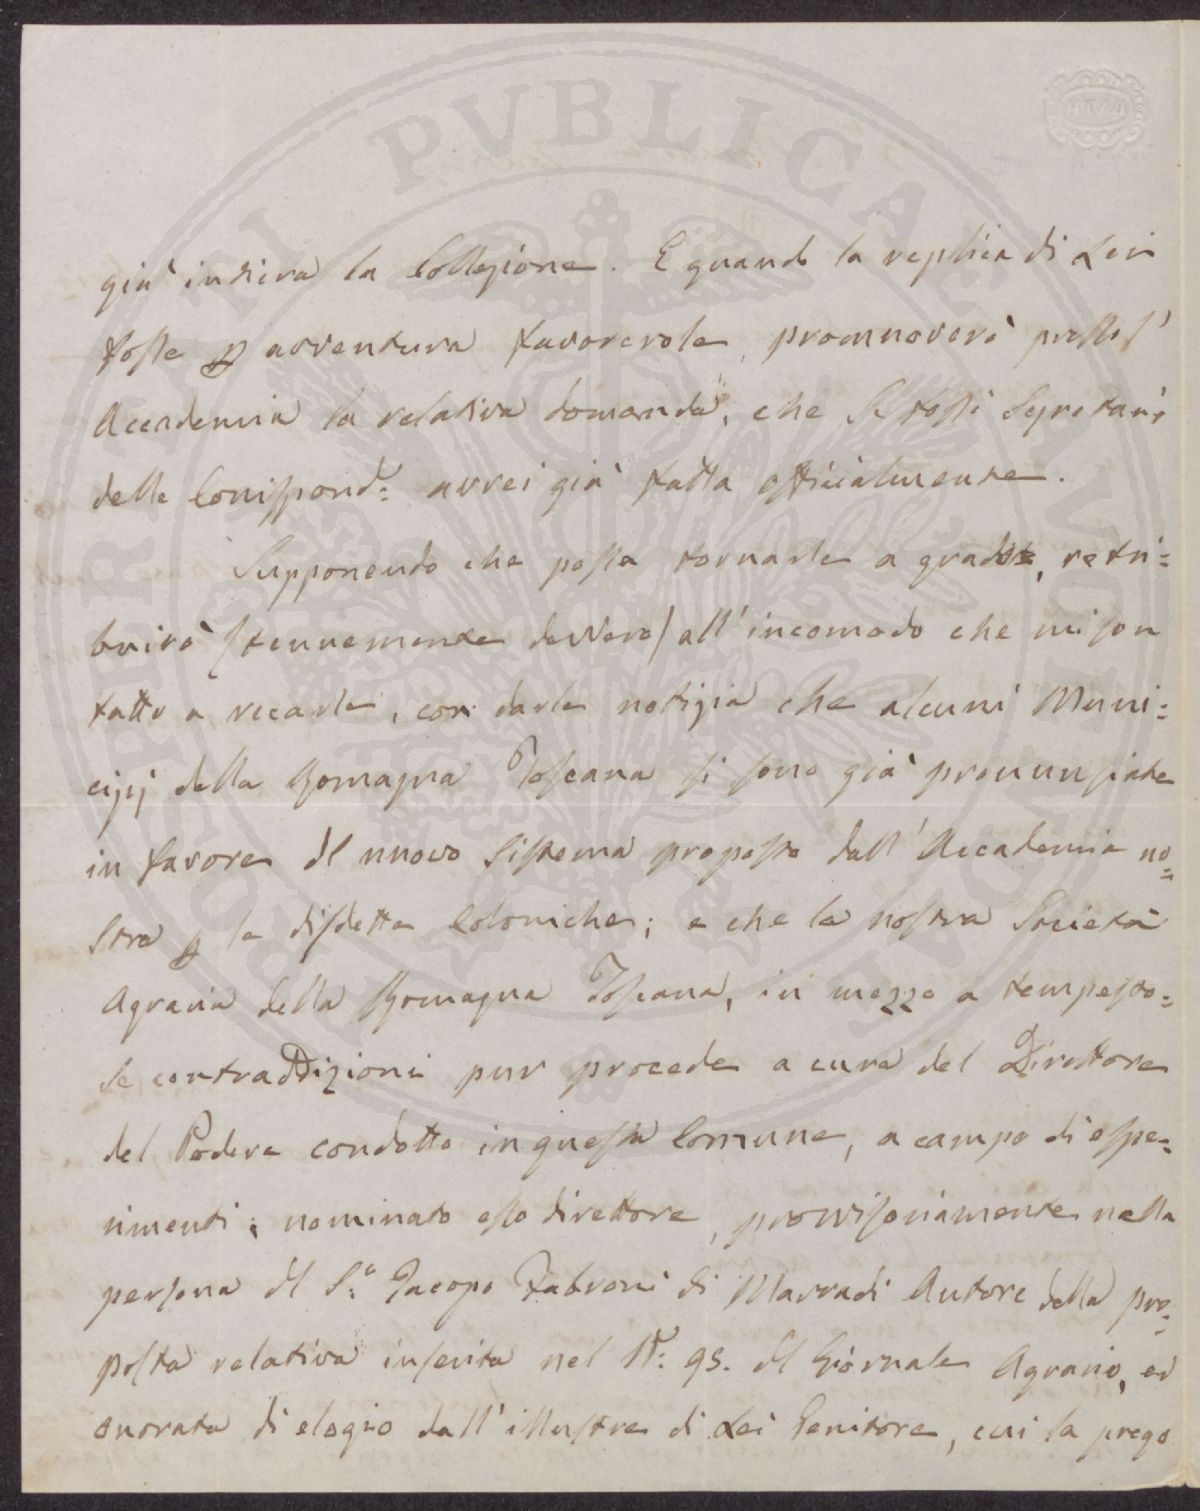 PVBLICAE
BATH
già intiera la Collezione. E quando la replica di Lei
fosse p avventura favorevole, promuoverò presso l'
Accademia la relativa domanda, che se fossi Segretario
delle Corrispond.e avrei già fatta officialmente.
Supponendo che possa tornarle a grado, retri=
buirò (tenuemente davvero) all'incomodo che mi son
fatto a recarle, con darle notizia che alcuni Muni=
cipj della Romagna Toscana si sono già pronunziate
in favore del nuovo Sistema proposto dall'Accademia no=
stra p le disdette Coloniche; e che la nostra Società
Agraria della Romagna Toscana, in mezzo a tempesto=
se contraddizioni pur procede a cura del Direttore
del Podere condotto in questa Comune, a campo di espe=
rimenti; nominato esso direttore, provvisoriamente nella
persona del S.r Jacopo Fabroni di Marradi Autore della pro=
posta relativa inserita nel N.o 95. del Giornale Agrario, ed
onorata di elogio dall'illustre di Lei Genitore, cui la prego